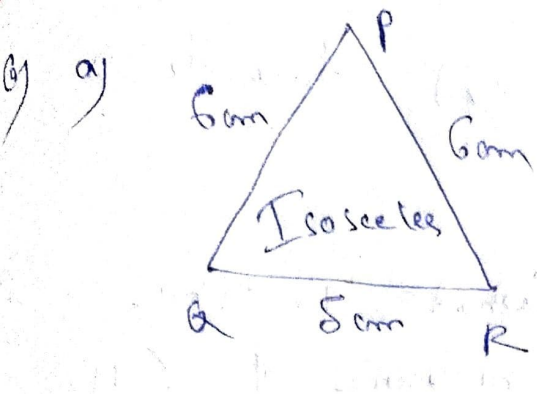 6) a)
P
6cm
6cm
Isosceles
Q
5cm
R